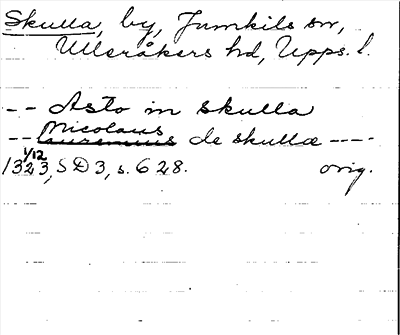 Skulla, by, Jumkils sn,
Ulleråkers hd, Upps. l.
-- Asto in skulla
Nicolaus
-- Laurencius de skulla ----
1/12
1323, SD3, s. 628. orig.